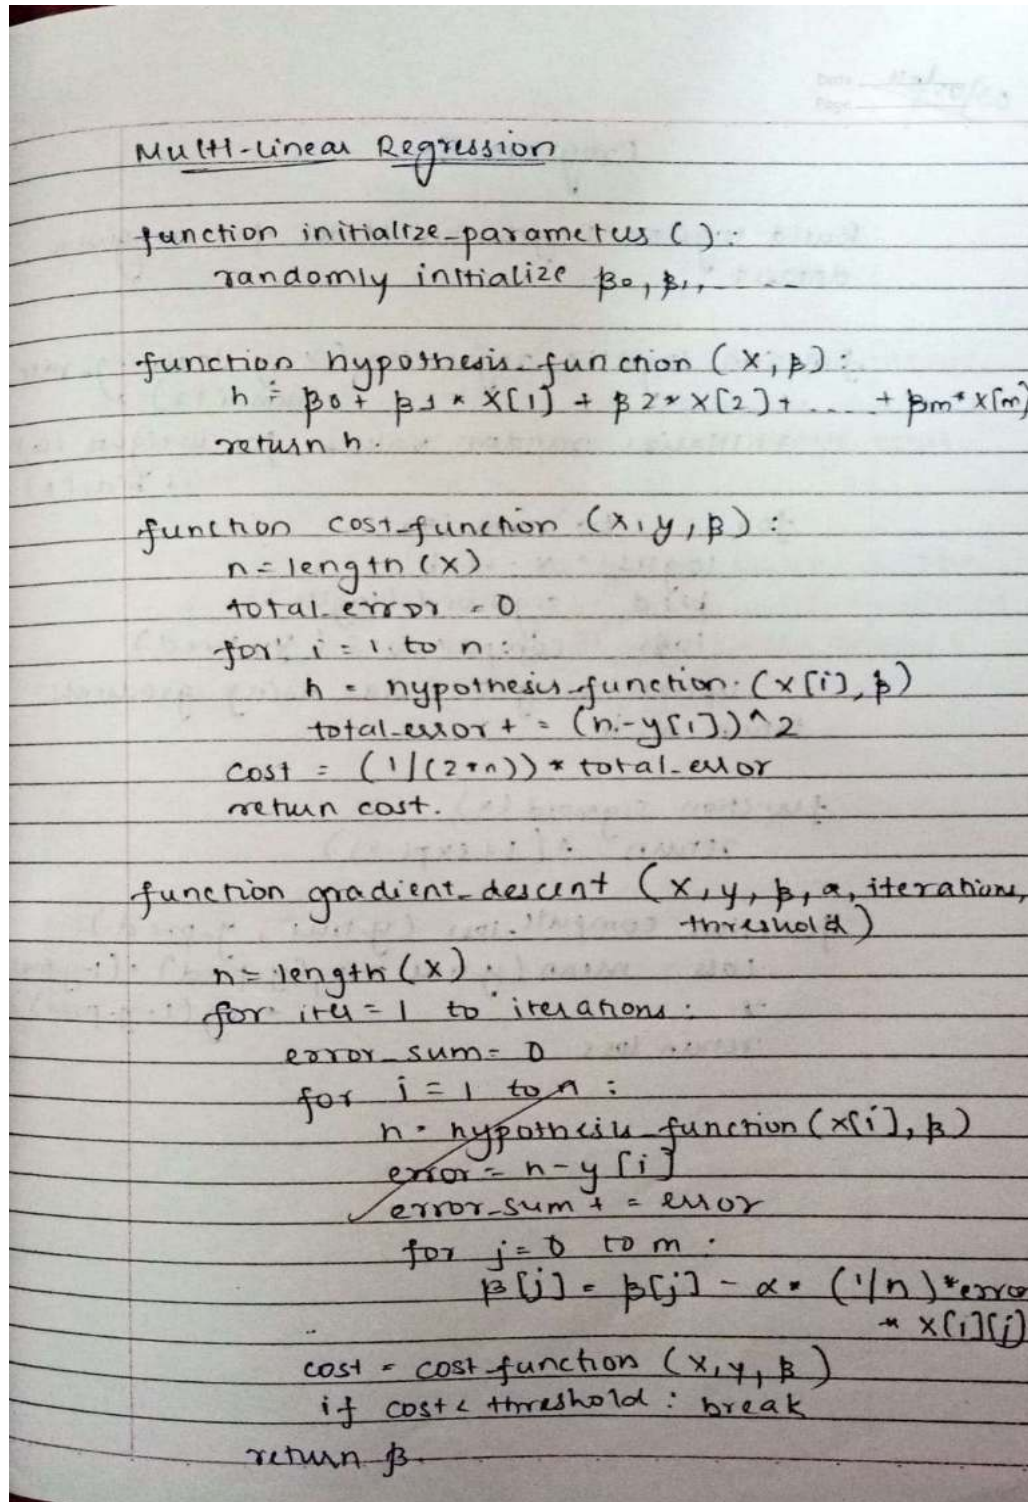 Date
Page
Multi-linear Regression
function initialize_parameters ( ) :
randomly initialize β0, β1, ......
function hypothesis_function (X, β) :
h = β0 + β1 * X[1] + β2 * X[2] + .... + βm * X[m]
return h
function cost_function (X, y, β) :
n = length (X)
total_error = 0
for i = 1 to n :
h = hypothesis_function (X[i], β)
total_error + = (h - y[i]) ^ 2
cost = (1/(2*n)) * total_error
return cost.
function gradient_descent (X, y, β, α, iterations,
threshold)
n = length (X)
for iter = 1 to iterations :
error_sum = 0
for i = 1 to n :
h = hypothesis_function (X[i], β)
error = h - y [i]
error_sum + = error
for j = 0 to m :
β[j] = β[j] - α * (1/n) * erro
* X[i][j]
cost = cost_function (X, y, β)
if cost < threshold : break
return β.